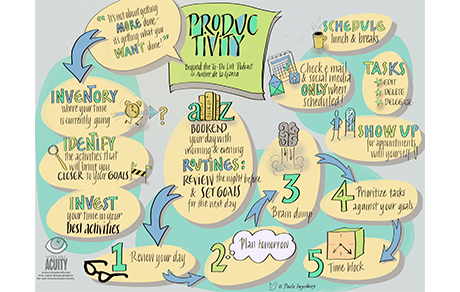 "It's not about getting
MORE done-
it's getting what you
WANT done!"
PRODUC
TIVITY
Beyond the To-Do List Podcast
INVENTORY
where your time
is currently going
?
IDENTIFY
the activities that
will bring you
CLOSER to your GOALS
INVEST
your time in your
best activities
a z
BOOKEND
your day with
morning & evening
ROUTINES:
REVIEW the night before
& SET GOALS
for the next day
SCHEDULE
lunch & breaks
Check e-mail
& social media
ONLY when
scheduled!
TASKS
EDIT
DELETE
DELEGATE
SHOW UP
for appointments
with yourself!
1 Review your day
2 Plan tomorrow
3
Brain dump
4 Prioritize tasks
against your goals
5 Time block
ACUITY